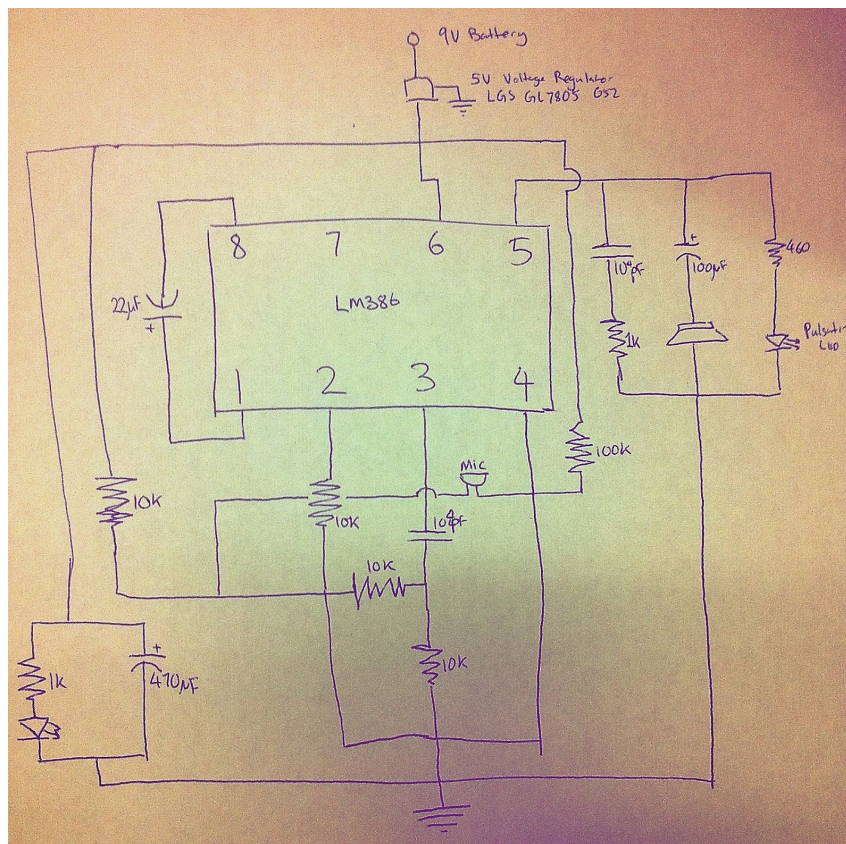 9V Battery
5V Voltage Regulator
LGS GL7805 GS2
8
7
6
5
LM386
1
2
3
4
22µF
+
10⁴pF
1K
+
100µF
460
LED
100K
Mic
10K
10K
10⁴pF
10K
10K
1K
+
470µF